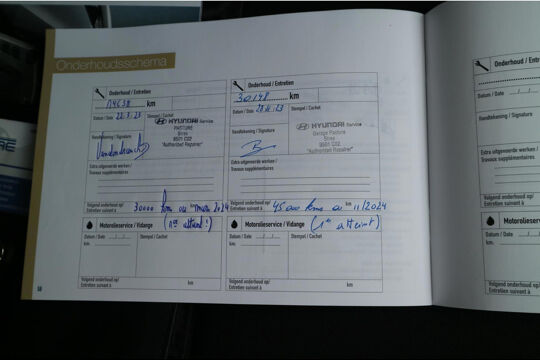 Onderhoudsschema
Onderhoud / Entretien
km
Datum / Date 22.3.23 Stempel / Cachet
HYUNDAI Service
PASTURE
Sirex
9501 C02
"Authorized Repairer"
Handtekening / Signature
Extra uitgevoerde werken /
Travaux supplémentaires
Volgend onderhoud op/
Entretien suivant à 30000 km ou mars 2024
(1er atteint)
Motorolieservice / Vidange
Datum / Date Stempel / Cachet
km
Volgend onderhoud op/
Entretien suivant à km
Onderhoud / Entretien
30148 km
Datum / Date Stempel / Cachet
HYUNDAI Service
Garage Pasture
9501 C02
"Authorized Repairer"
Handtekening / Signature
Extra uitgevoerde werken /
Travaux supplémentaires
Volgend onderhoud op/
Entretien suivant à 45000 kms 11/2024
(1er atteint)
Motorolieservice / Vidange
Datum / Date Stempel / Cachet
km.
Volgend onderhoud op/
Entretien suivant à km
Onderhoud / En
Datum / Date
Handtekening / Signature
Extra uitgevoerde werken
Travaux supplémentaires
Volgend onderhoud op/
Entretien suivant à
Motorolieserv
Datum / Date
km.
Volgend onderhoud op/
Entretien suivant à